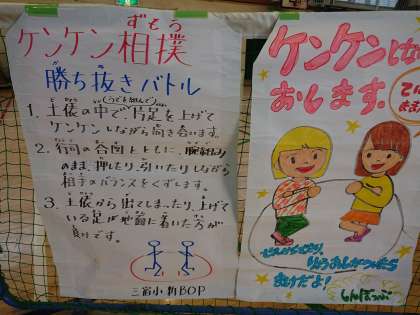 ケンケン相撲
ずもう
勝ち抜きバトル
(うでを組んで)
1. 土俵の中で、片足を上げて
ケンケンしながら向き合います。
2. 行司の合図とともに、腕組み
のまま、押したり、引いたりしながら
相手のバランスをくずします。
3. 土俵から出てしまったり、上げて
いる足が地面に着いた方が
負けです。
三宿小新BOP
ケンケンしな
おします。
りょうあしがついたら
まけだよ!
しんぼっぷ